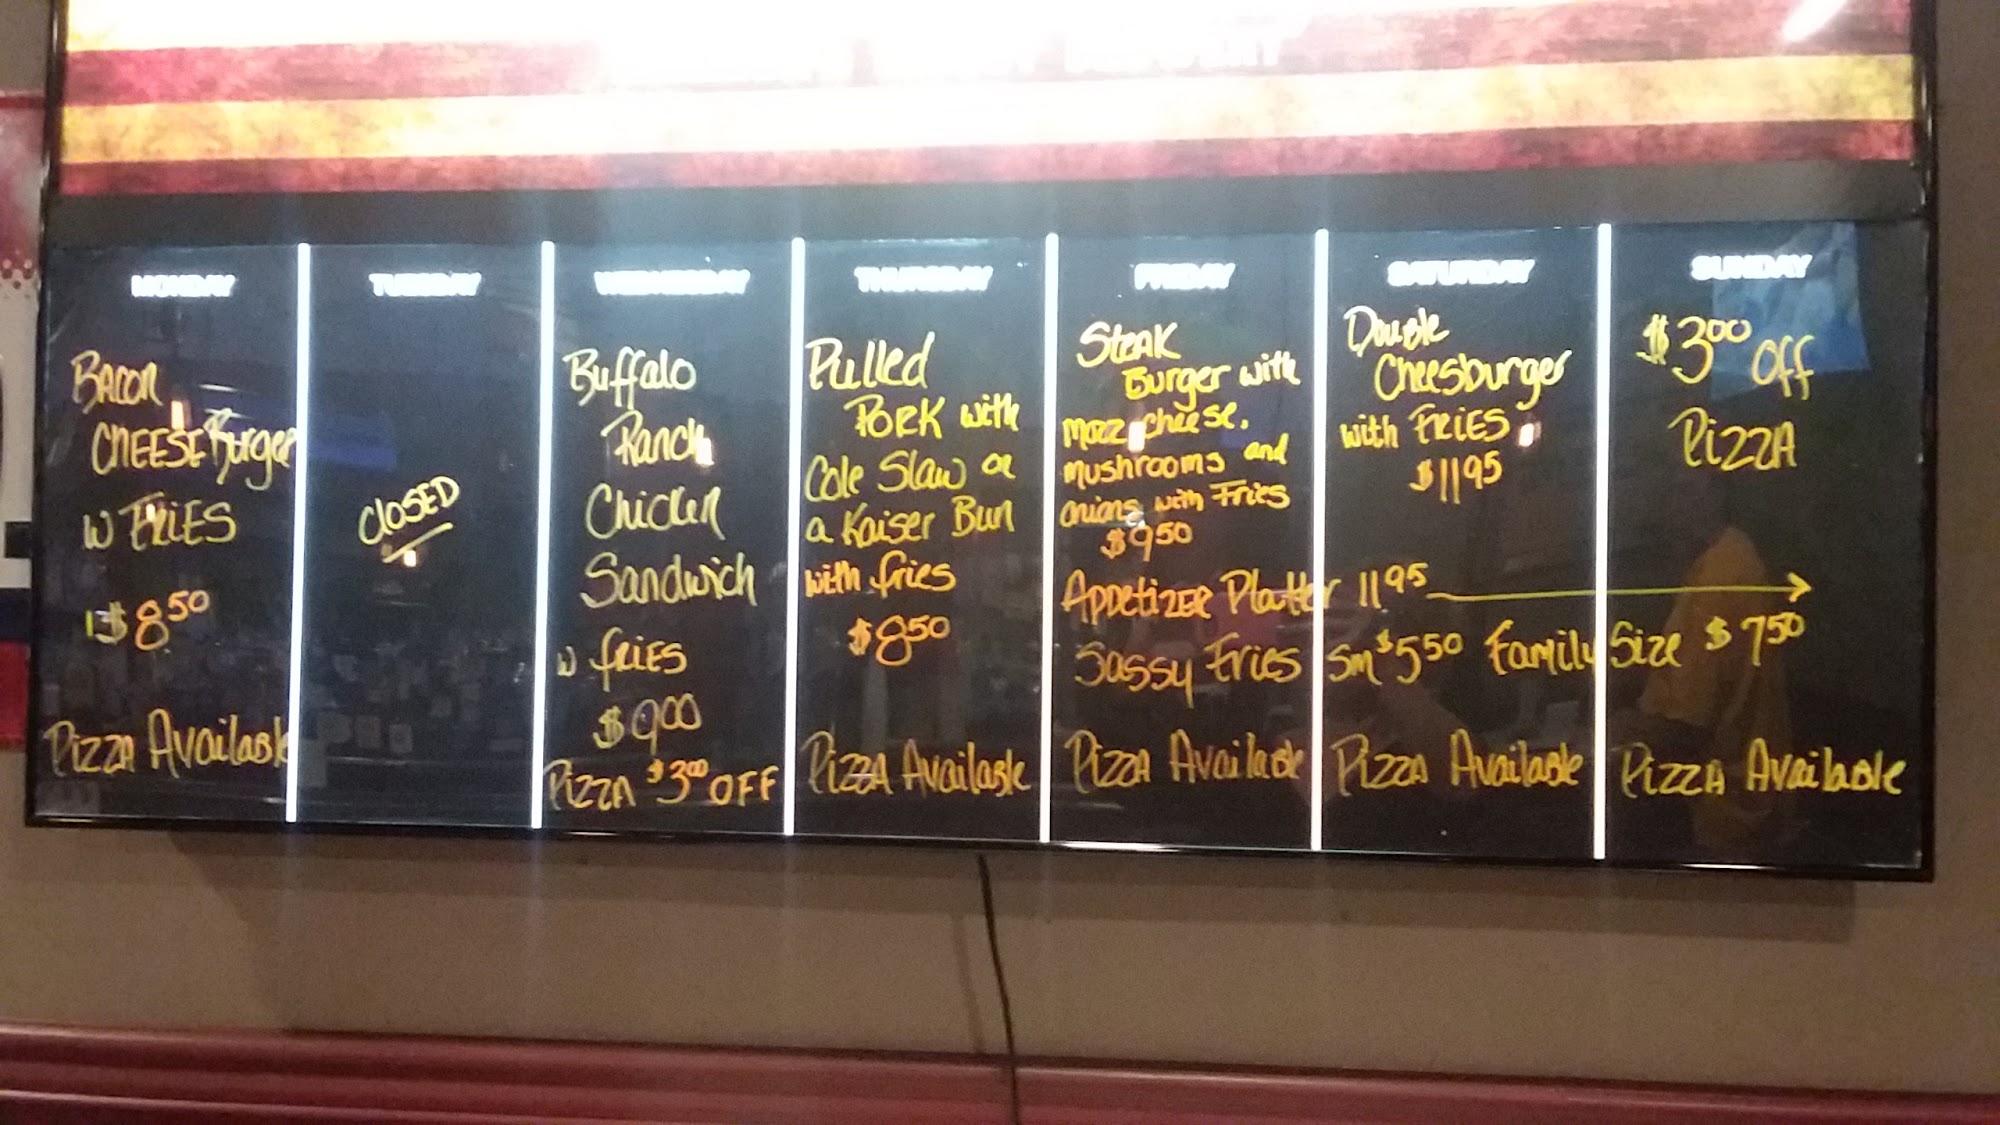 MONDAY
Bacon
CHEESE Burger
w FRIES
$8.50
Pizza Available
TUESDAY
CLOSED
WEDNESDAY
Buffalo
Ranch
Chicken
Sandwich
w fries
$9.00
Pizza $3.00 OFF
THURSDAY
Pulled
PORK with
Cole Slaw on
a Kaiser Bun
with fries
$8.50
Pizza Available
FRIDAY
Steak
Burger with
mozz cheese.
mushrooms and
onions with Fries
$9.50
SATURDAY
Double
Cheesburger
with FRIES
$11.95
SUNDAY
$3.00 Off
Pizza
Appetizer Platter 11.95
Sassy Fries Sm $5.50 Family Size $7.50
Pizza Available
Pizza Available
Pizza Available